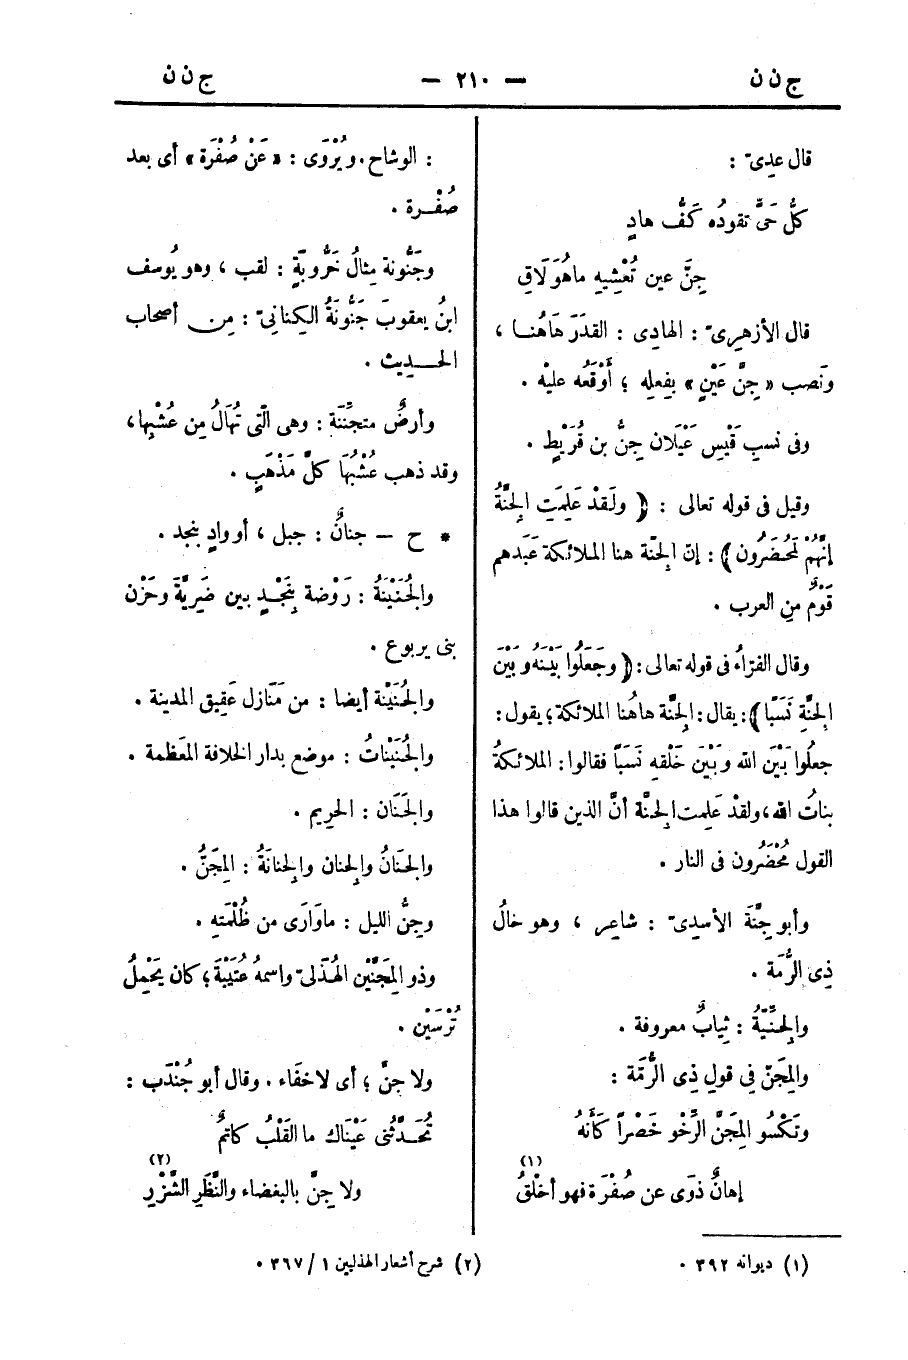 ج ن ن
— ٢١٠ —
ج ن ن
قال عدىّ :
كلُّ حَىٍّ تقودُه كَفُّ هادٍ
جِنَّ عين تُعْشِيه ماهُوَ لَاقِ
قال الأزهرىّ : الهادى : القدَرَ هَاهُنا ،
ونَصب « جِنَّ عَيْنٍ » بِفعلِه ؛ أَوْقَعَه عليْه .
وفى نسبِ قَيْسِ عَيْلان جِنُّ بن قُرَيْطٍ .
وقيل فى قوله تعالى : ﴿ ولَقدْ عَلِمَتِ الجِنَّةُ
إِنَّهُمْ لَمُحْضَرُون ﴾ : إنّ الجِنّة هنا الملائكة عَبَدهم
قَوْمٌ منِ العرب .
وقال الفرّاءُ فى قوله تعالى : ﴿ وجَعَلُوا بَيْنَه وبَيْنَ
الجِنَّةِ نَسَبًا ﴾ : يقال : الجِنَّة هاهُنا الملائكة ؛ يقول :
جعلُوا بَيْنَ الله وبَيْنَ خَلْقِه نَسَباً فقالوا : الملائكةُ
بناتُ الله ، ولقدْ عَلِمت الجِنَّة أنَّ الذين قالوا هذا
القول مُحْضَرُون فى النار .
وأبو جِنَّةَ الأسدىّ : شاعر ، وهو خالُ
ذِى الرُّمَّة .
والجِنِّيَّةُ : ثِيابٌ معروفة .
والمِجَنّ فِى قولِ ذِى الرُّمَّة :
وتَكْسُو المِجَنَّ الرَّخْوَ خَصْراً كَأَنَّهُ
إِهانٌ ذَوَى عن صُفْرَة فهو أخْلقُ (١)
: الوشاح . ويُرْوَى : « عَنْ صُفْرَة » أى بعد
صُفْرة .
وجَنُّونة مِثالُ خَرُّوبَةٍ : لقب ، وهو يُوسف
ابنُ يعقوبَ جَنُّونَةُ الكِنانىّ : مِن أصحاب
الحديث .
وأرضٌ متجَنِّنَة : وهى الّتى تُهَالُ مِن عُشْبِها ،
وقد ذهب عُشْبُهَا كلَّ مَذْهَبٍ .
* ح — جنانٌ : جبل ، أو وادٍ بنجد .
والجُنَيْنَةُ : رَوْضة بِنَجْدٍ بين ضَرِيَّةَ وحَزْن
بنى يربوع .
والجُنَيْنة أيضا : من مَنَازل عَقِيق المدينة .
والجُنَيْناتُ : موضع بدار الخلافة المعَظمة .
والجَنَان : الحريم .
والجَنَانُ والجِنان والجِنانَةُ : المِجَنُّ .
وجِنُّ الليل : ماوَارَى من ظُلْمَتِهِ .
وذو المِجَنَّيْنِ الهُذَلىّ واسمهُ عُتَيْبَة ؛ كان يَحْمِلُ
تُرْسَيْن .
ولا جنَّ ؛ أى لاخفَاء . وقال أبو جُنْدَب :
تُحَدِّثُنى عَيْناك ما القَلْبُ كاتمٌ
ولا جِنَّ بالبغضاء والنَّظَرِ الشَّزْرِ (٢)
(١) ديوانه ٣٩٢ .
(٢) شرح أشعار الهذليين ١ / ٣٦٧ .